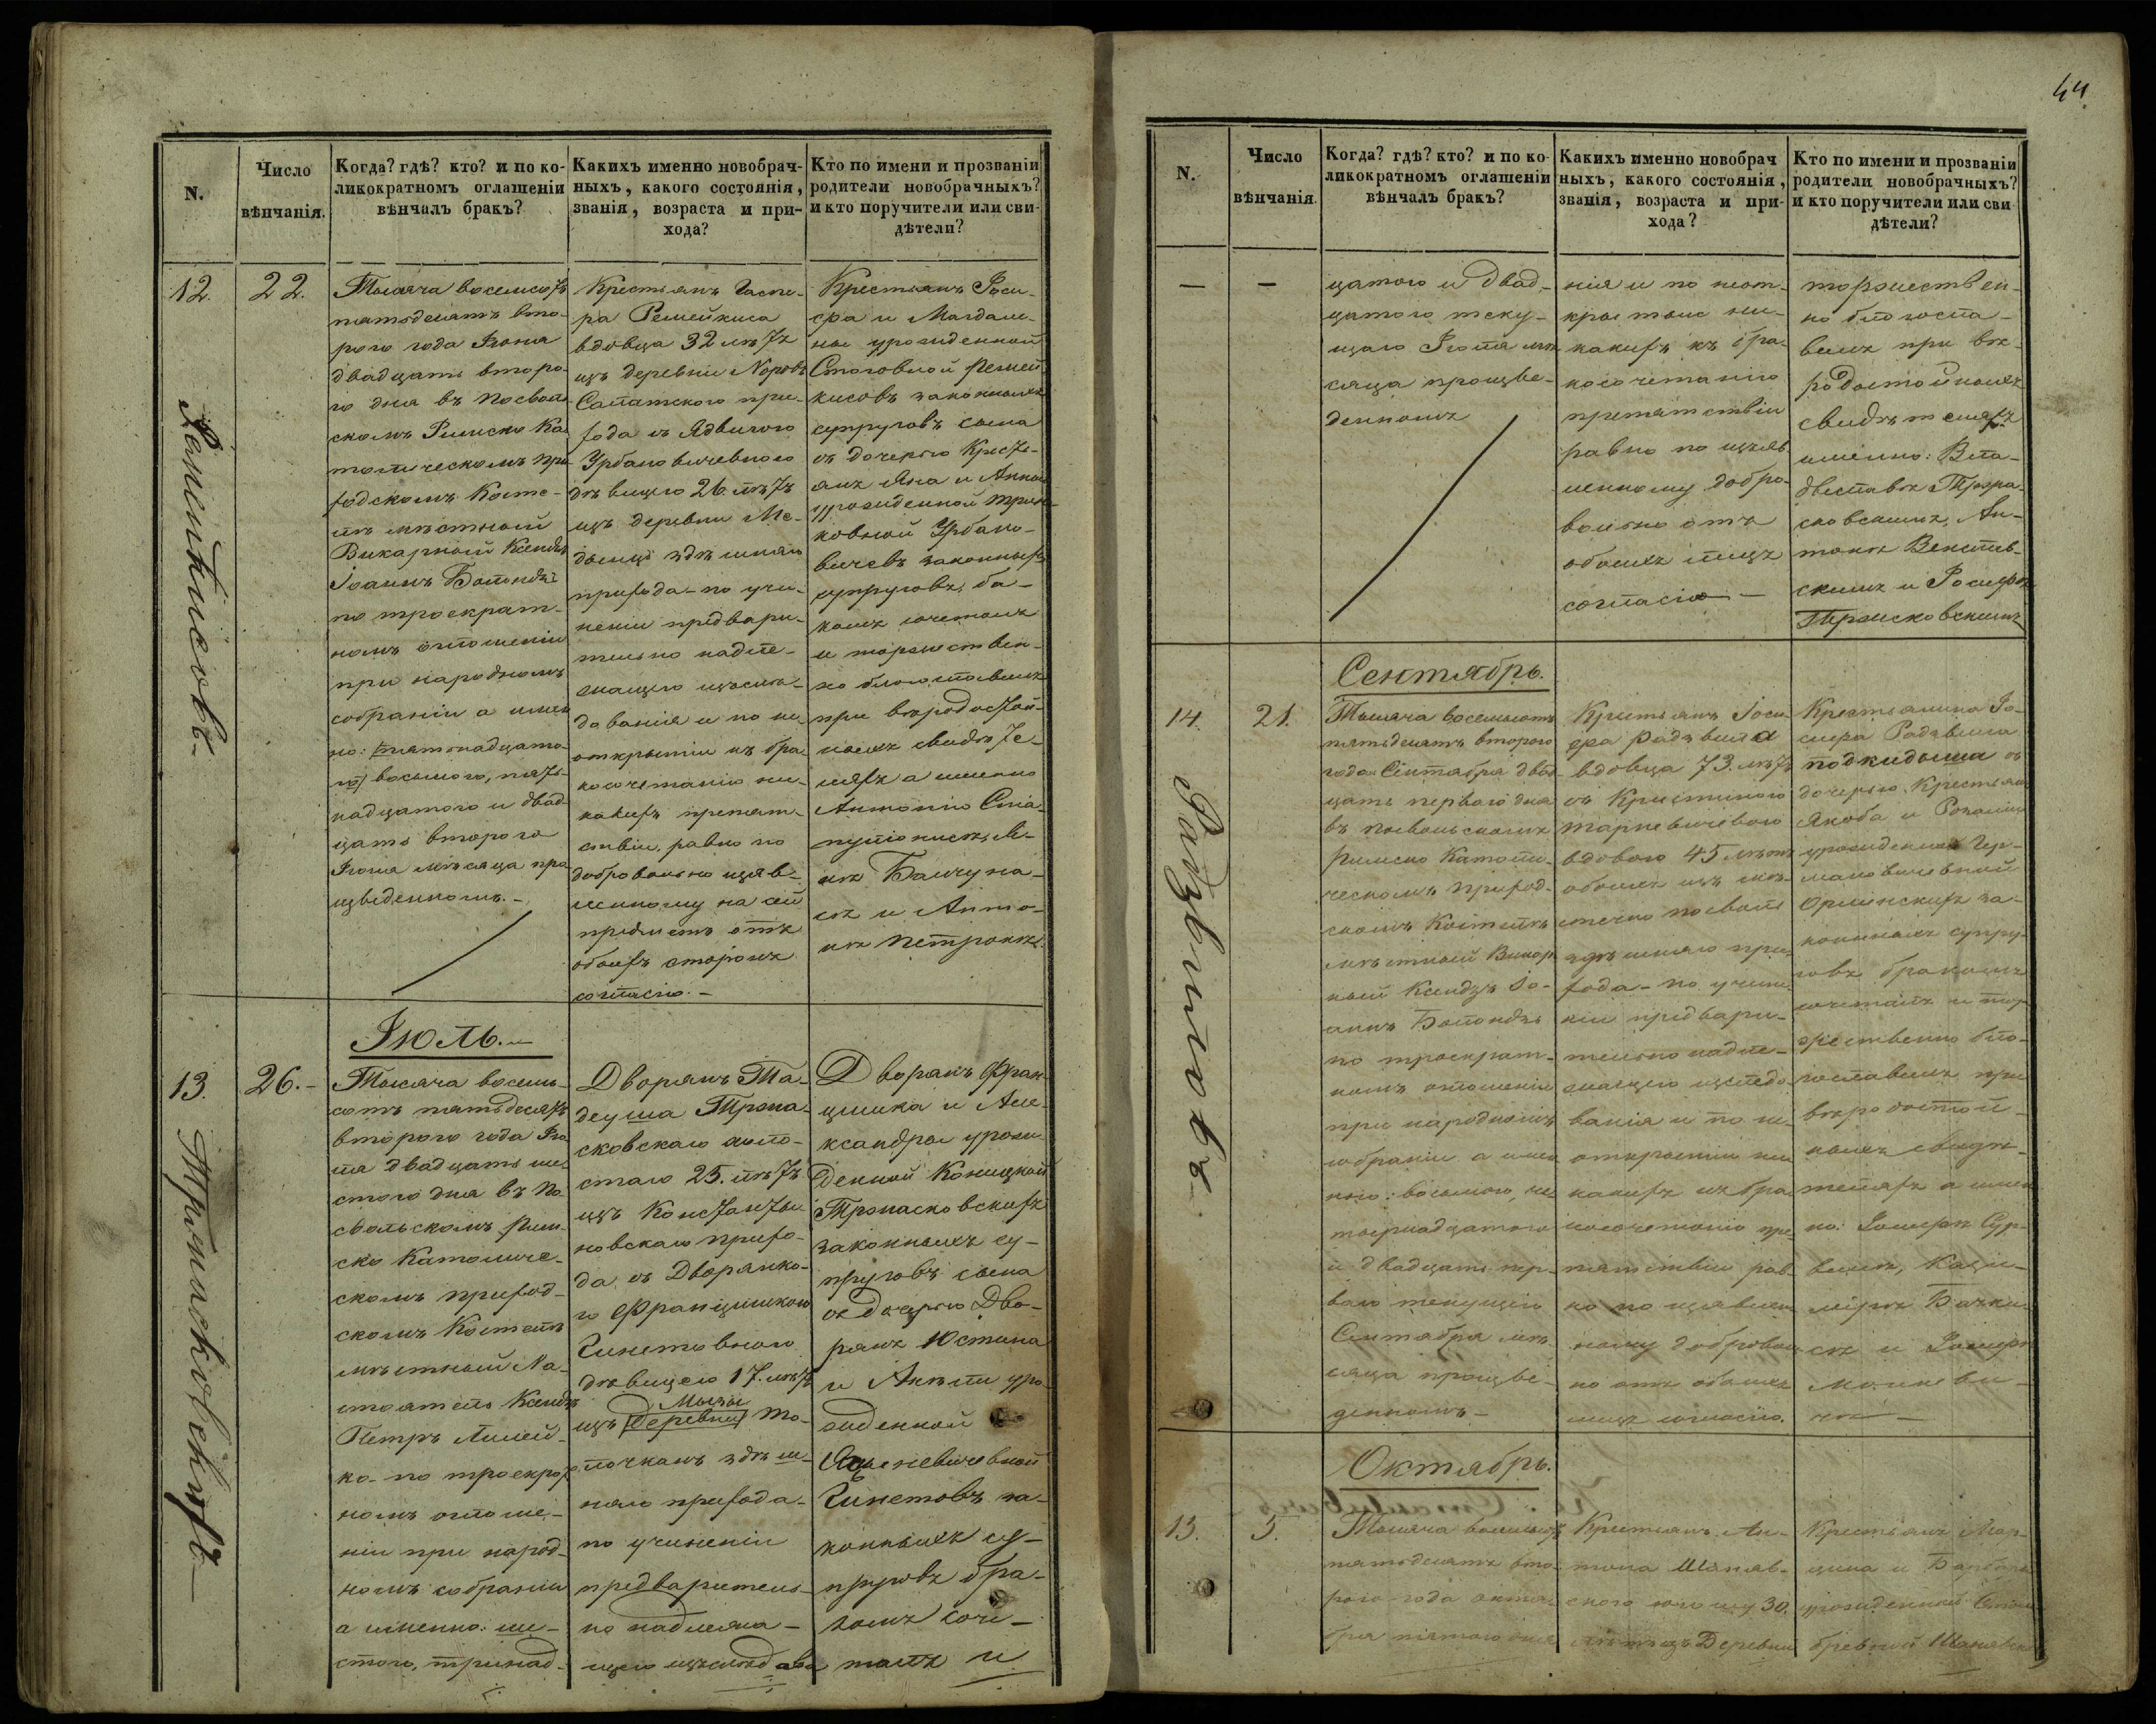 N.
Число
вѣнчанія.
Когда? гдѣ? кто? и по ко-
ликократномъ оглашеніи
вѣнчалъ бракъ?
Какихъ именно новобрач-
ныхъ, какого состоянія,
званія, возраста и при-
хода?
Кто по имени и прозваніи
родители новобрачныхъ?
и кто поручители или сви-
дѣтели?
12.
22.
Тысяча восемьсотъ
пятьдесятъ вто-
рого года Іюня
двадцать второ-
го дня въ Посволь-
скомъ Римско Ка
толическомъ при
ходскомъ Косте-
лѣ мѣстный
Викарный Ксендзъ
Іоаннъ
по троекрат-
номъ оглашеніи
при народномъ
собраніи а имен
но:
восьмого, пят-
надцатого и двад
цать второго
Іюня мѣсяца про
изведенномъ.-
Крестьянъ Гаспе-
ра Ремейкиса
вдовца 32 лѣтъ
изъ деревни
Салатского при-
хода съ Ядвигою
Урбановичевною
дѣвицею 26. лѣтъ
изъ деревни Ме-
здѣшняго
прихода - по учи-
неніи предвари-
тельно надле-
жащего изслѣ-
дованія и по не-
открытіи къ бра
косочетанію ни-
какихъ препят-
ствіи, равно по
добровольно изъяв-
ленному на сей
предметъ отъ
обоихъ сторонъ
согласію.-
Крестьянъ Іоси-
фа и Магдале-
ны урожденной
Ремей
кисовъ законныхъ
супруговъ сына
съ дочерью Кресть-
янъ Яна и Анны
урожденной
ковной Урбано-
вичевъ законныхъ
супруговъ, ба-
комъ сочеталъ
и торжествен-
но благославилъ
при вѣродостой-
ныхъ свидѣте-
ляхъ а именно
Антонію
и Анто-
нѣ Петронѣ.
Ремейкисовъ.-
Іюль.-
13.
26.-
Тысяча восемь-
сотъ пятьдесятъ
второго года Ію
ля двадцать ше
стого дня въ По
свольскомъ Рим-
ско Католиче-
скомъ приход-
скомъ Костелѣ
мѣстный На-
стоятель Ксендзъ
Петръ
ко- по троекрат
номъ оглаше-
ніи при народ-
номъ собраніи
а именно: ше-
стого, тринад-
Дворянъ Та-
деуша Трона-
сковскаго холо-
стаго 25. лѣтъ
изъ Константи
новскаго прихо-
да, съ Дворянко-
ю Францишкою
Гинетовною
дѣвицею 17. лѣтъ
Мызы
изъ Деревни То-
лочканъ здѣш-
няго прихода-
по учиненіи
предваритель-
но надлежа-
щего изслѣдова
Дворянъ Фран
цишка и Але-
ксандры урож-
денной Коницкой
Тронасковскихъ
законныхъ су-
пруговъ сына
съ дочерью Дво-
рянъ Юстина
и Анели уро
жденной
Гинетовъ за-
конныхъ су-
пруговъ бра-
комъ соче-
талъ и
44.
N.
Число
вѣнчанія.
Когда? гдѣ? кто? и по ко-
ликократномъ оглашеніи
вѣнчалъ бракъ?
Какихъ именно новобрач
ныхъ, какого состоянія,
званія, возраста и при-
хода?
Кто по имени и прозваніи
родители новобрачныхъ?
и кто поручители или сви
дѣтели?
—
—
цатого и двад-
цатого теку-
щаго Іюля мѣ
сяца произве-
денномъ
нія и по неот-
крытые ни-
какихъ къ бра-
косочетанію
препятствіи
равно по изъяв
ленному добро-
вольно отъ
обоихъ лицъ
согласію —
торжествен-
но благосла-
вилъ при вѣ-
родостойныхъ
свидѣтеляхъ
именно: Вла-
диславѣ Трона-
сковскимъ, Ан-
тонѣ
скимъ и Іосифѣ
Сентябрь.
14.
21.
Тысяча восемьсотъ
пятьдесятъ второго
года Сентября двад
цать первого дня
въ Посвольскомъ
Римско Католи-
ческомъ приход-
скомъ Костелѣ
мѣстный Викар
ный Ксендзъ Іо-
аннъ
по троекрат-
номъ оглашеніи
при народномъ
собраніи а имен
но: восьмого, че
тырнадцатого
и двадцать пер-
ваго текущего
Сентября мѣ-
сяца произве-
денномъ-
Крестьянъ Іоси-
фа Радзвила
вдовца 73. лѣтъ
съ Кристиною
вдовою 45 лѣтъ
обоихъ изъ мѣ-
стечка Посволь
здѣшняго при
хода - по учине
ніи предвари-
тельно надле-
жащего изслѣдо
ванія и по не-
открытіи ни
какихъ къ бра
косочетанію пре
пятствіи рав-
но по изъявлен
ному добровол
но отъ обоихъ
лицъ согласію.
Крестьянина Іо-
сифа Радзвила
подкидыша съ
дочерью Крестьян
Якоба и Розаліи
урожденной Гер-
мановичевной
за-
конныхъ супру-
говъ бракомъ
сочеталъ и тор
жественно бла-
гославилъ при
вѣродостой-
ныхъ свидѣ-
теляхъ а имен
но: Іосифѣ
Кази-
мірѣ
и Іосифѣ
Радзвиловъ-
Октябрь.
15.
5.
Тысяча восемьсотъ
пятьдесятъ вто-
рого года октя-
бря пятого дня
Крестьянъ Ан-
тона Шаняв-
ского юношу 30.
лѣтъ изъ Деревни
Крестьянъ Мар-
цина и Барбары
урожденной